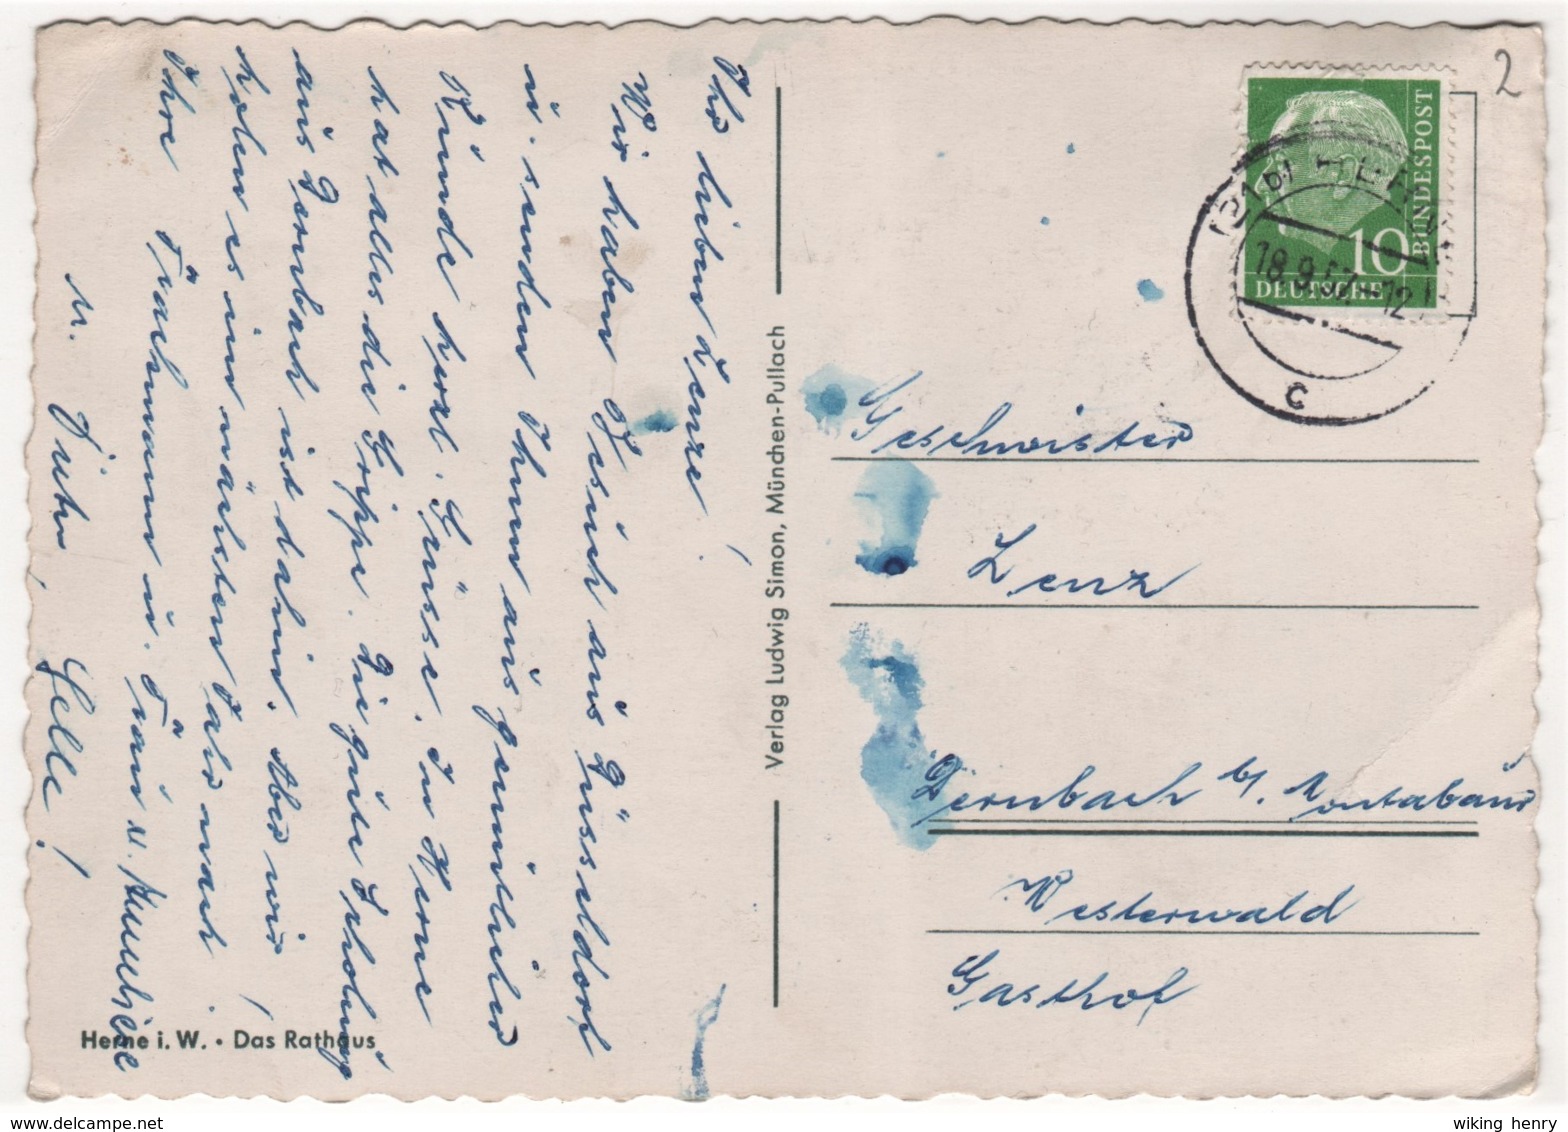 Ihr lieben Lenze!
Wir haben Besuch aus Düsseldorf
u. senden Ihnen aus gemütlicher
Runde herzl. Grüsse. In Herne
hat alles die Grippe. Die gute Erholung
aus Dernbach ist dahin. Aber wir
holen es im nächsten Jahr nach!
Ihre Trachmann u. Frau u. Anneliese
u. Jutta, Gelle!
Herne i. W. • Das Rathaus
Verlag Ludwig Simon, München-Pullach
2
DEUTSCHE BUNDESPOST
10
(21b) HERNE
18.9.57-12
c
Geschwister
Lenz
Dernbach b/. Montabaur
Westerwald
Gasthof
www.delcampe.net
wiking henry